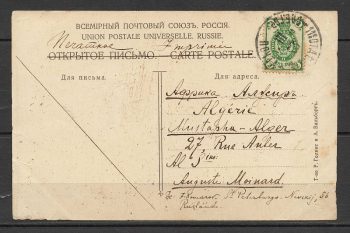 ВСЕМІРНЫЙ ПОЧТОВЫЙ СОЮЗЪ. РОССІЯ.
UNION POSTALE UNIVERSELLE. RUSSIE.
Печатное Imprimé
ОТКРЫТОЕ ПИСЬМО. — CARTE POSTALE
Для письма.
Для адреса.
Африка Алжиръ
Algérie
Mustapha-Alger
27, Rue
Al
Auguste Moinard.
St Petersbourg
Т-во Р. Голике и А. Вильборгъ.